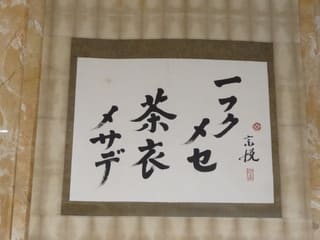 一フク
メセ
茶衣
メサデ
宗悦